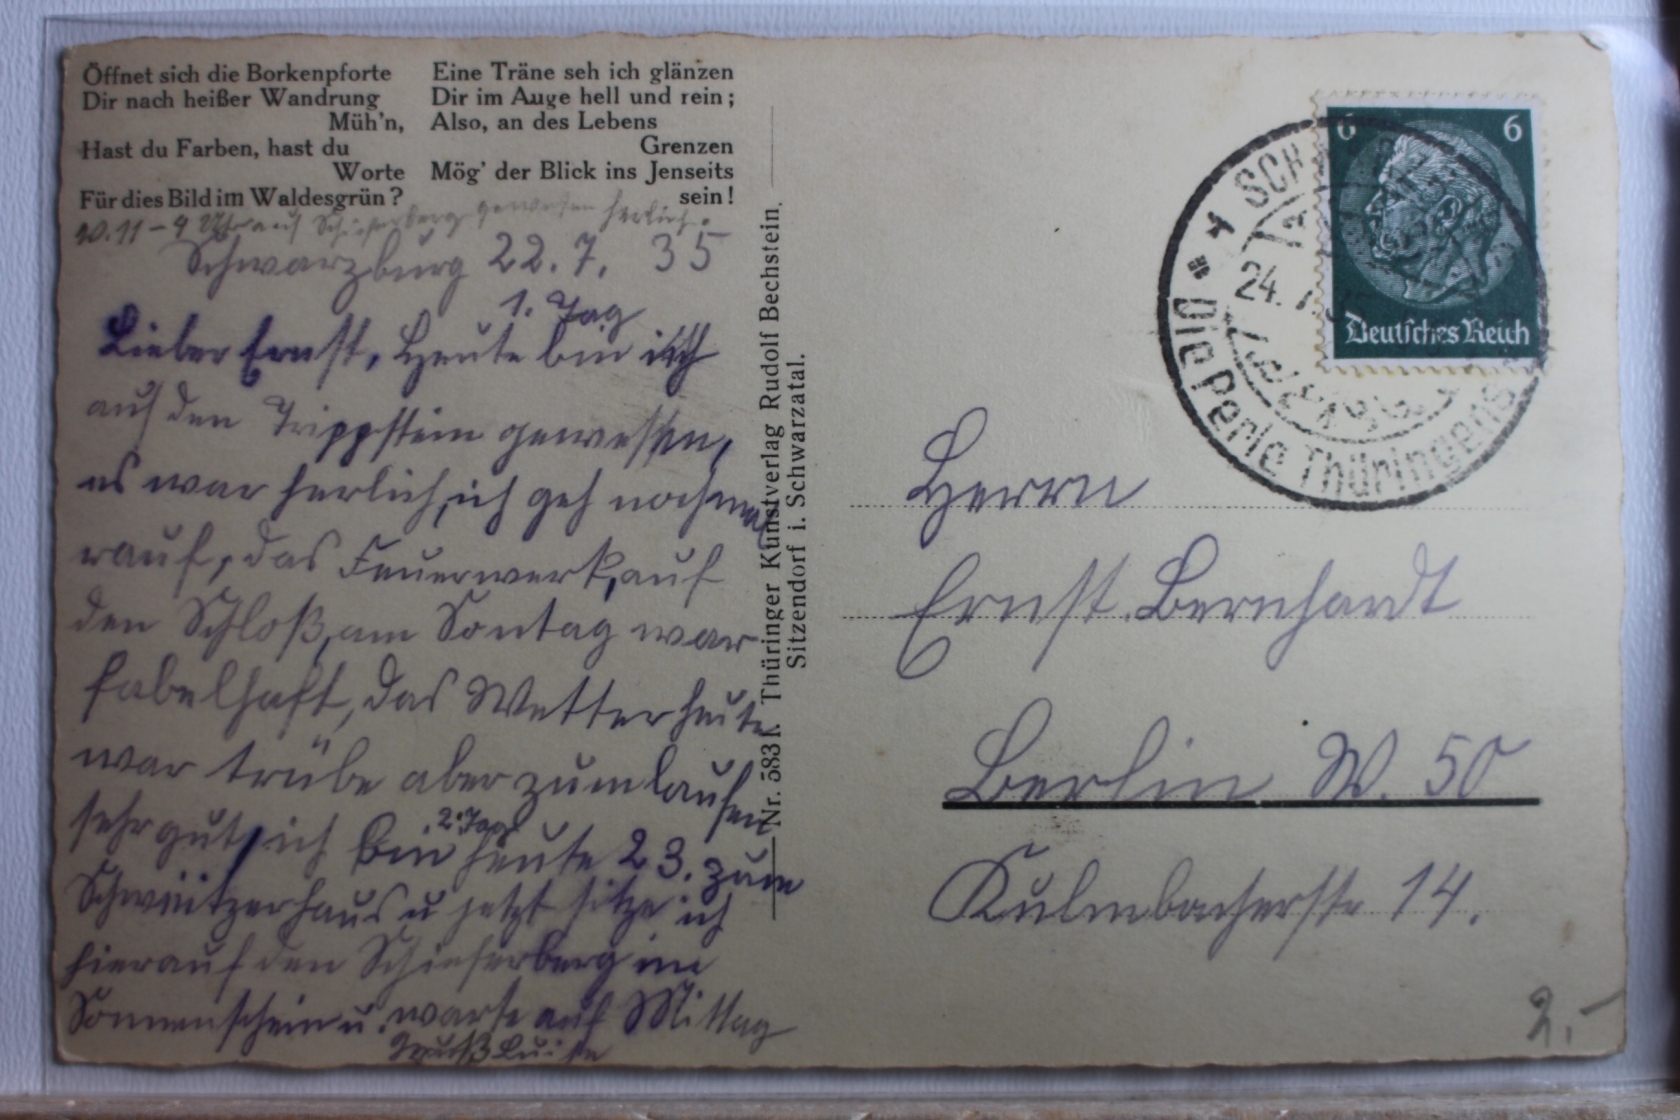 Öffnet sich die Borkenpforte
Dir nach heißer Wandrung
Müh'n,
Hast du Farben, hast du
Worte
Für dies Bild im Waldesgrün?
Eine Träne seh ich glänzen
Dir im Auge hell und rein;
Also, an des Lebens
Grenzen
Mög' der Blick ins Jenseits
sein!
11-4 Uhr auf Schieferberg gewesen herlich.
Schwarzburg 22.7. 35
1. Tag
Lieber Ernst, Heute bin ich
auf den Trippstein gewessen,
es war herlich, ich geh nochmal
rauf, das Feuerwerk, auf
den Schloß, am Sontag war
fabelhaft, das Wetter heute
war trübe aber zum laufen
sehr gut, ich bin heute 23. zum
2. Tag
Schweitzerhaus u jetzt sitze ich
hierauf den Schieferberg im
Sonnenschein u. warte auf Mittag
Gruß Luise
Nr. 583 K. Thüringer Kunstverlag Rudolf Bechstein.
Sitzendorf i. Schwarzatal.
6 6
Deutsches Reich
24.
Die Perle Thüringens
Herrn
Ernst Bernhardt
Berlin W. 50
Kulmbacherstr 14.
2.-